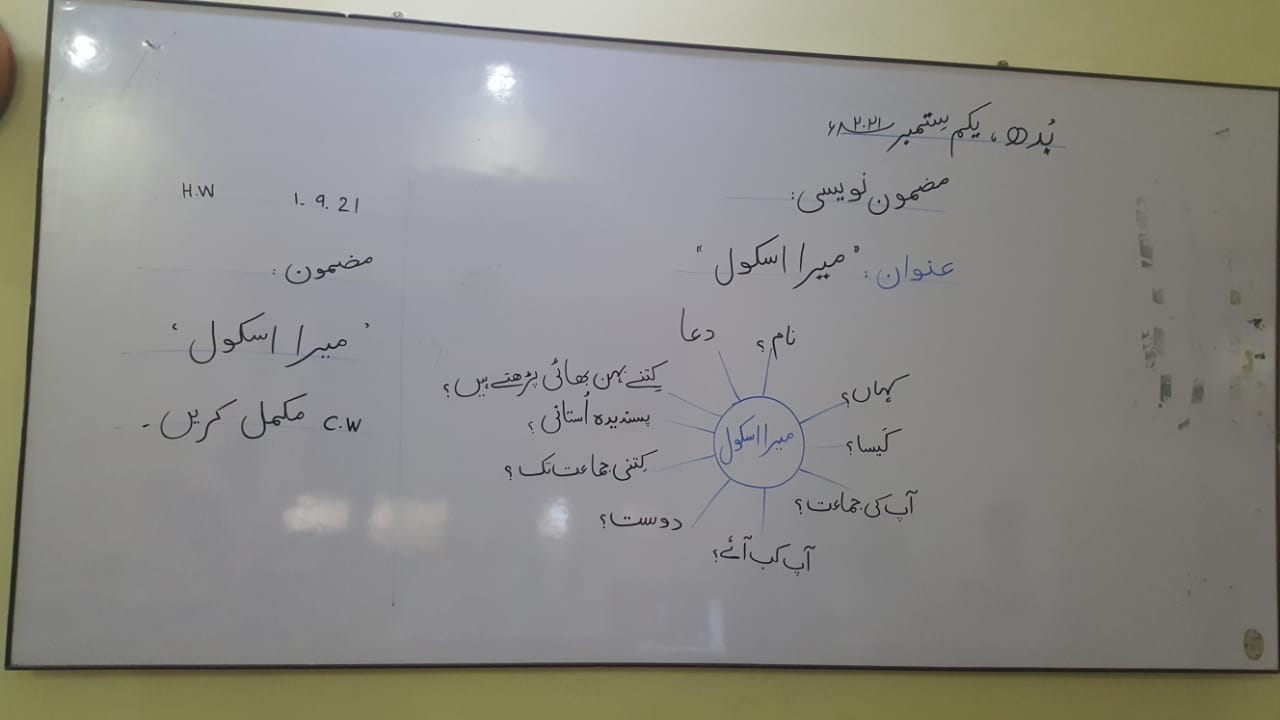 بُدھ، یکم سِتمبر ۲۰۲۱ء
مضمون نویسی:
عنوان: "میرا اسکول"
میرا اسکول
نام؟
کہاں؟
کَیسا؟
آپ کی جماعت؟
آپ کب آئے؟
دوست؟
کِتنی جماعت تک؟
پسندیدہ اُستانی؟
کِتنے بہن بھائی پڑھتے ہیں؟
دعا
H.W 1.9.21
مضمون:
'میرا اسکول'
C.W مکمل کریں۔